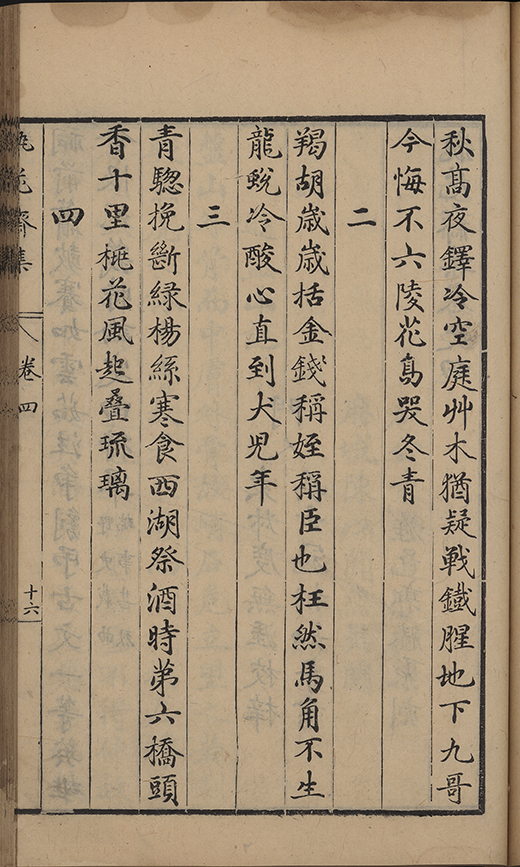 秋髙夜鐸冷空庭艸木猶疑戰鐵腥地下九哥
今悔不六陵花鳥哭冬青
二
羯胡歳歳括金錢稱姪稱臣也枉然馬角不生
龍蛻冷酸心直到犬児年
三
青騘挽斷緑楊絲寒食西湖祭酒時第六橋頭
香十里桃花風起疊琉璃
四
齋集
卷四
十六